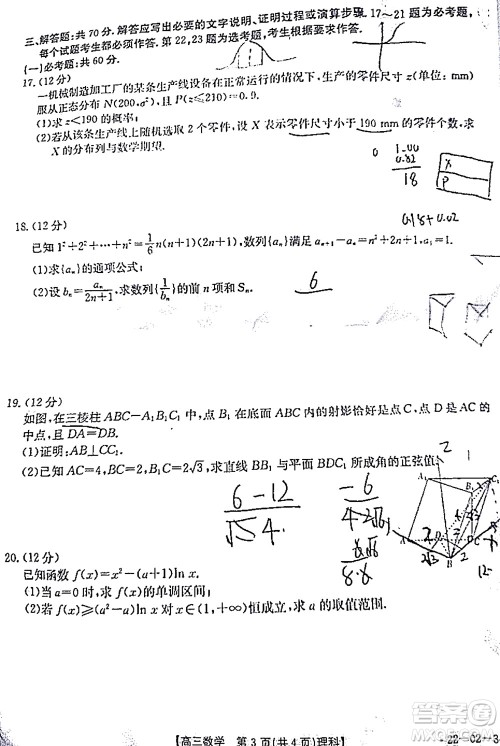 三、解答题：共70分。解答应写出必要的文字说明、证明过程或演算步骤。17～21题为必考题，
每个试题考生都必须作答。第22,23题为选考题，考生根据要求作答。
(一)必考题：共60分。
17.(12分)
一机械制造加工厂的某条生产线设备在正常运行的情况下，生产的零件尺寸z(单位：mm)
服从正态分布N(200,σ²)，且P(z≤210)=0.9.
(1)求z<190的概率；
(2)若从该条生产线上随机选取2个零件，设X表示零件尺寸小于190 mm的零件个数，求
X的分布列与数学期望.
0
1.00
0.82
18
X
P
0.18+0.02
18.(12分)
已知1²+2²+…+n²=1/6 n(n+1)(2n+1)，数列{aₙ}满足aₙ₊₁=aₙ+n²+2n+1，a₁=1.
(1)求{aₙ}的通项公式；
(2)设bₙ=aₙ/(2n+1)，求数列{1/bₙ}的前n项和Sₙ.
6
19.(12分)
如图，在三棱柱ABC-A₁B₁C₁中，点B₁在底面ABC内的射影恰好是点C，D是AC的
中点，且DA=DB.
(1)证明：AB⊥CC₁；
(2)已知AC=4，BC=2√3，求直线BB₁与平面BDC₁所成角的正弦值.
6-12
√54
-6
4·2√6
6√6
8·8
20.(12分)
已知函数f(x)=x²-(a+1)ln x.
(1)当a=0时，求f(x)的单调区间；
(2)若f(x)≥(a²-a)ln x对x∈(1,+∞)恒成立，求a的取值范围.
【高三数学 第3页(共4页)理科】
·22-02-·3